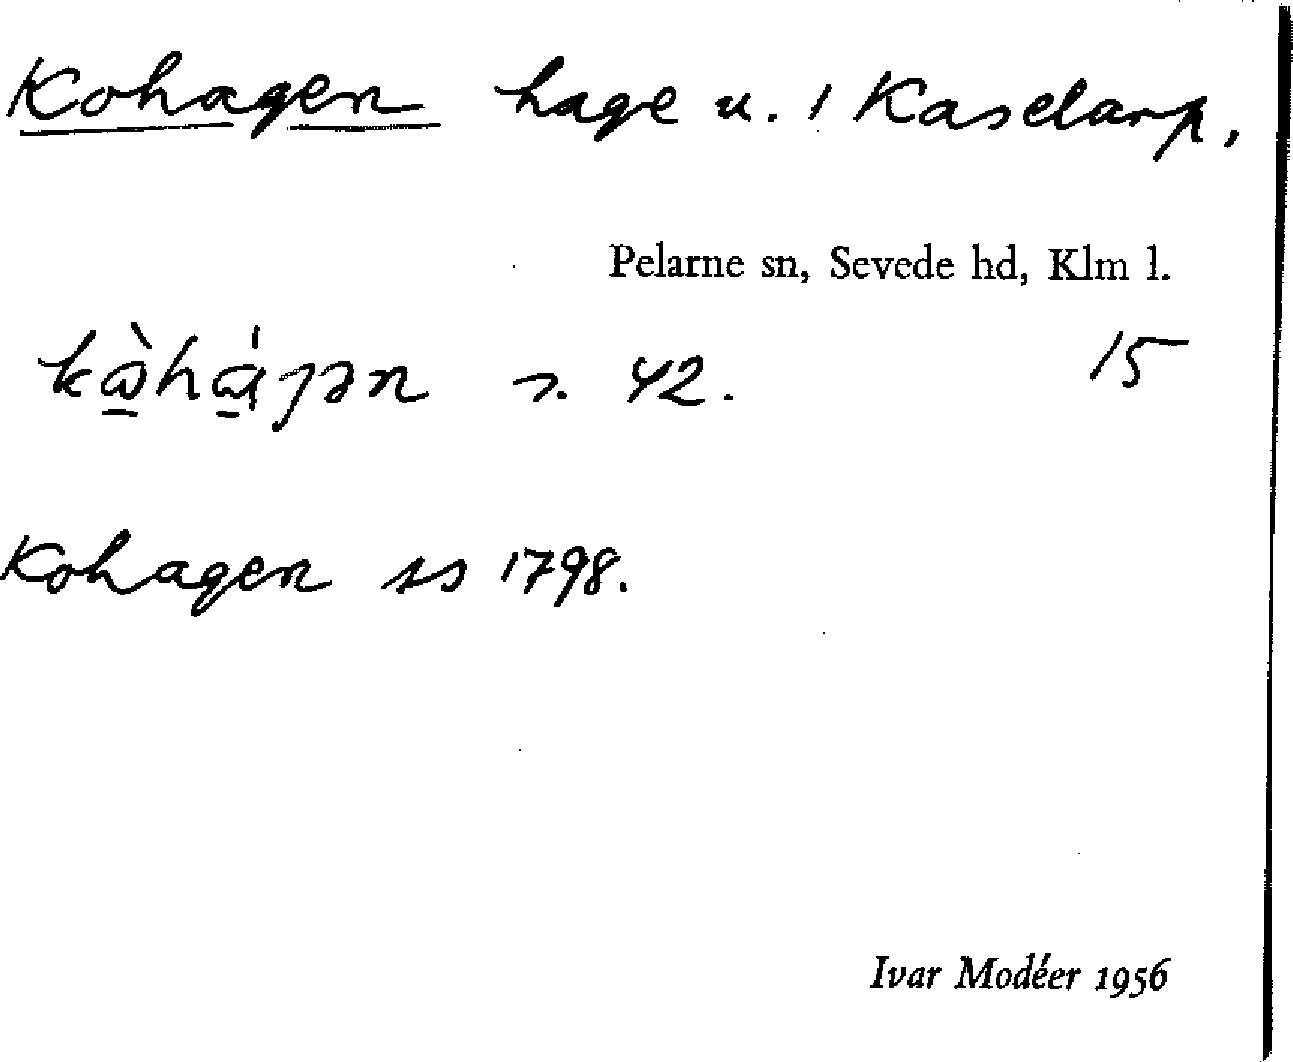 Kohagen hage u. 1 Kaselarp,
Pelarne sn, Sevede hd, Klm l.
15
s. 42.
Kohagen ss 1798.
Ivar Modéer 1956